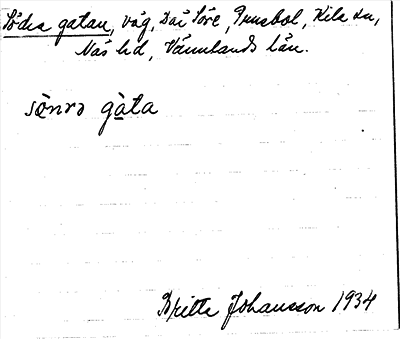 Södra gatan, väg, Dal Söre, Grusbol, Kila sn,
Näs hd, Värmlands län.
sö̀nrə gàta
Britta Johansson 1934